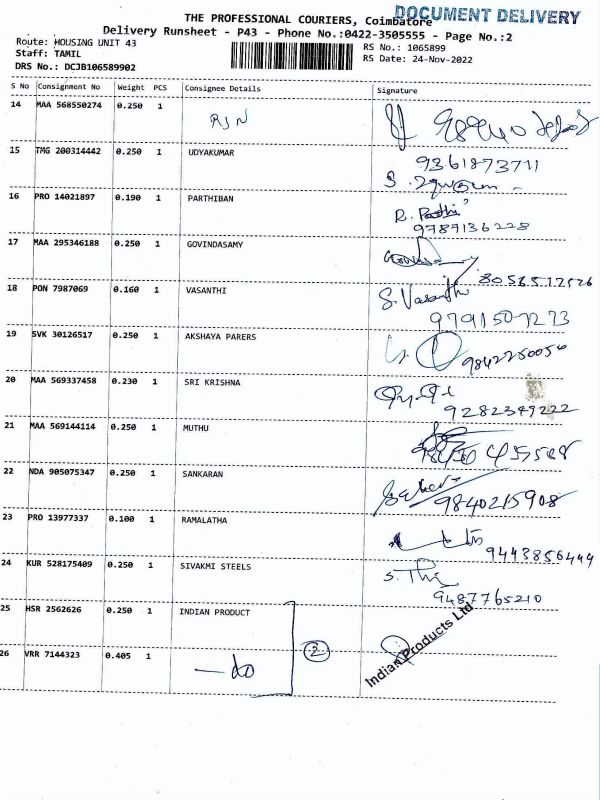 DOCUMENT DELIVERY
THE PROFESSIONAL COURIERS, Coimbatore
Delivery Runsheet - P43 - Phone No.:0422-3505555 - Page No.:2
Route: HOUSING UNIT 43 RS No.: 1065899
Staff: TAMIL RS Date: 24-Nov-2022
DRS No.: DCJB106589902
S No Consignment No Weight PCS Consignee Details Signature
14 MAA 568550274 0.250 1 RJN
15 TMG 200314442 0.250 1 UDYAKUMAR 9361873711
S.
16 PRO 14021897 0.190 1 PARTHIBAN R. Parthi
9789136228
17 MAA 295346188 0.250 1 GOVINDASAMY
8056517526
18 PON 7987069 0.160 1 VASANTHI S. Vasanthi
9791507273
19 SVK 30126517 0.250 1 AKSHAYA PARERS 9842250056
20 MAA 569337458 0.230 1 SRI KRISHNA
9282349222
21 MAA 569144114 0.250 1 MUTHU
22 NDA 905075347 0.250 1 SANKARAN
9840215908
23 PRO 13977337 0.100 1 RAMALATHA
9443856444
24 KUR 528175409 0.250 1 SIVAKMI STEELS S. Thi
9487765210
25 HSR 2562626 0.250 1 INDIAN PRODUCT
Indian Products Ltd
26 VRR 7144323 0.405 1 — do 2